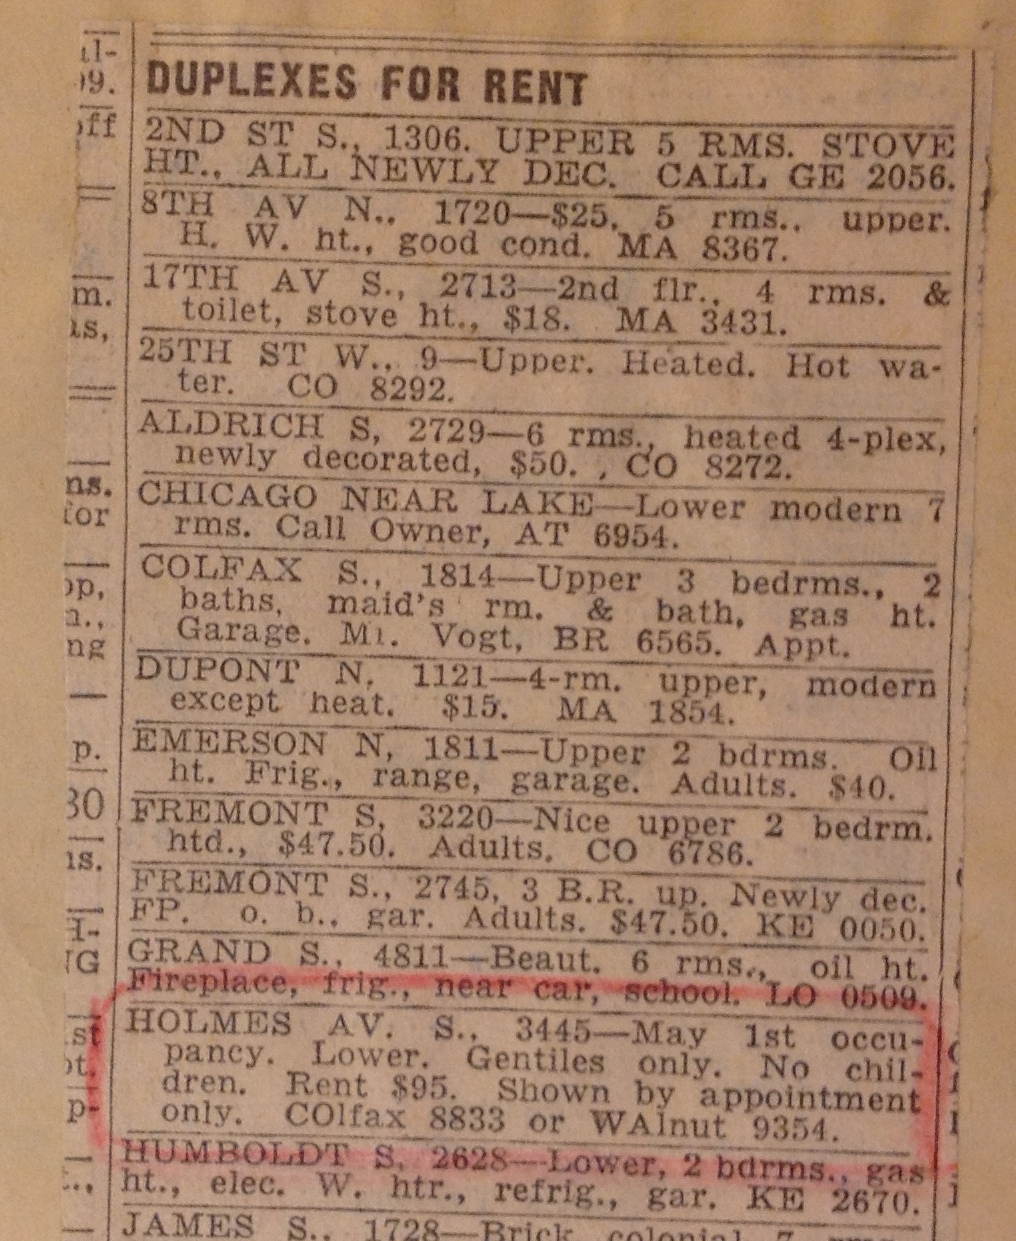 DUPLEXES FOR RENT
2ND ST S., 1306. UPPER 5 RMS. STOVE
HT., ALL NEWLY DEC. CALL GE 2056.
8TH AV N., 1720—$25, 5 rms., upper.
H. W. ht., good cond. MA 8367.
17TH AV S., 2713—2nd flr., 4 rms. &
toilet, stove ht., $18. MA 3431.
25TH ST W., 9—Upper. Heated. Hot wa-
ter. CO 8292.
ALDRICH S, 2729—6 rms., heated 4-plex,
newly decorated, $50. , CO 8272.
CHICAGO NEAR LAKE—Lower modern 7
rms. Call Owner, AT 6954.
COLFAX S., 1814—Upper 3 bedrms., 2
baths, maid's rm. & bath, gas ht.
Garage. Mr. Vogt, BR 6565. Appt.
DUPONT N, 1121—4-rm. upper, modern
except heat. $15. MA 1854.
EMERSON N, 1811—Upper 2 bdrms. Oil
ht. Frig., range, garage. Adults. $40.
FREMONT S, 3220—Nice upper 2 bedrm.
htd., $47.50. Adults. CO 6786.
FREMONT S., 2745, 3 B.R. up. Newly dec.
FP. o. b., gar. Adults. $47.50. KE 0050.
GRAND S., 4811—Beaut. 6 rms., oil ht.
Fireplace, frig., near car, school. LO 0509.
HOLMES AV. S., 3445—May 1st occu-
pancy. Lower. Gentiles only. No chil-
dren. Rent $95. Shown by appointment
only. COlfax 8833 or WAlnut 9354.
HUMBOLDT S, 2628—Lower, 2 bdrms., gas
ht., elec. W. htr., refrig., gar. KE 2670.
JAMES S., 1728—Brick colonial 7